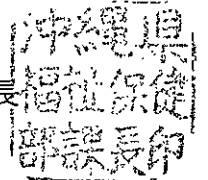 沖縄県
福祉保健
部課長印